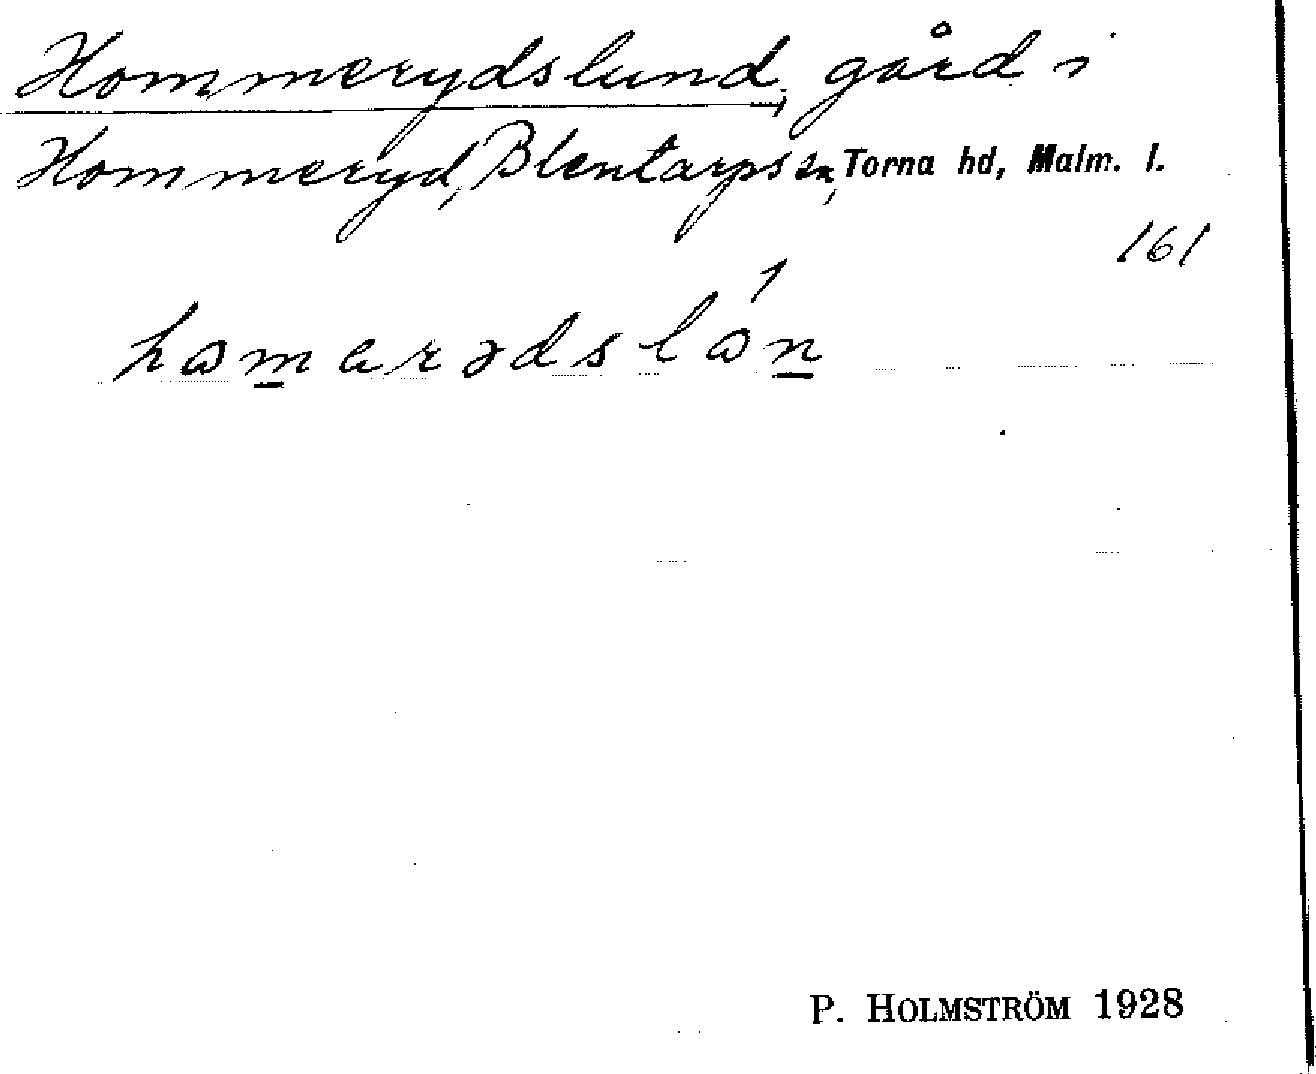 Hommerydslund, gård i
Hommeryd, Blentarps sn, Torna hd, Malm. l.
161
hamarədslán
P. HOLMSTRÖM 1928